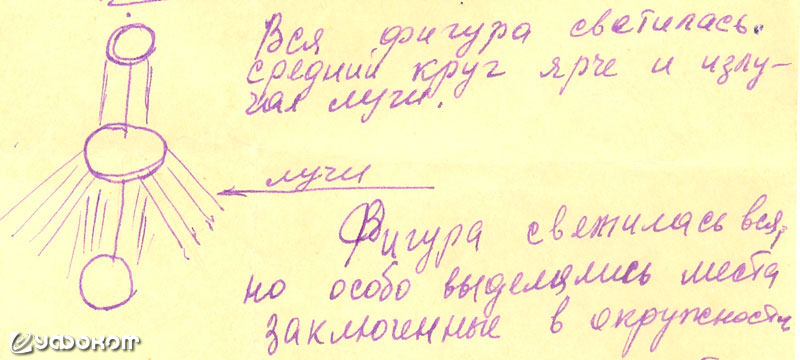 Вся фигура светилась.
средний круг ярче и излу-
чал лучи.
лучи
Фигура светилась вся,
но особо выделялись места
заключенные в окружности
уфоком